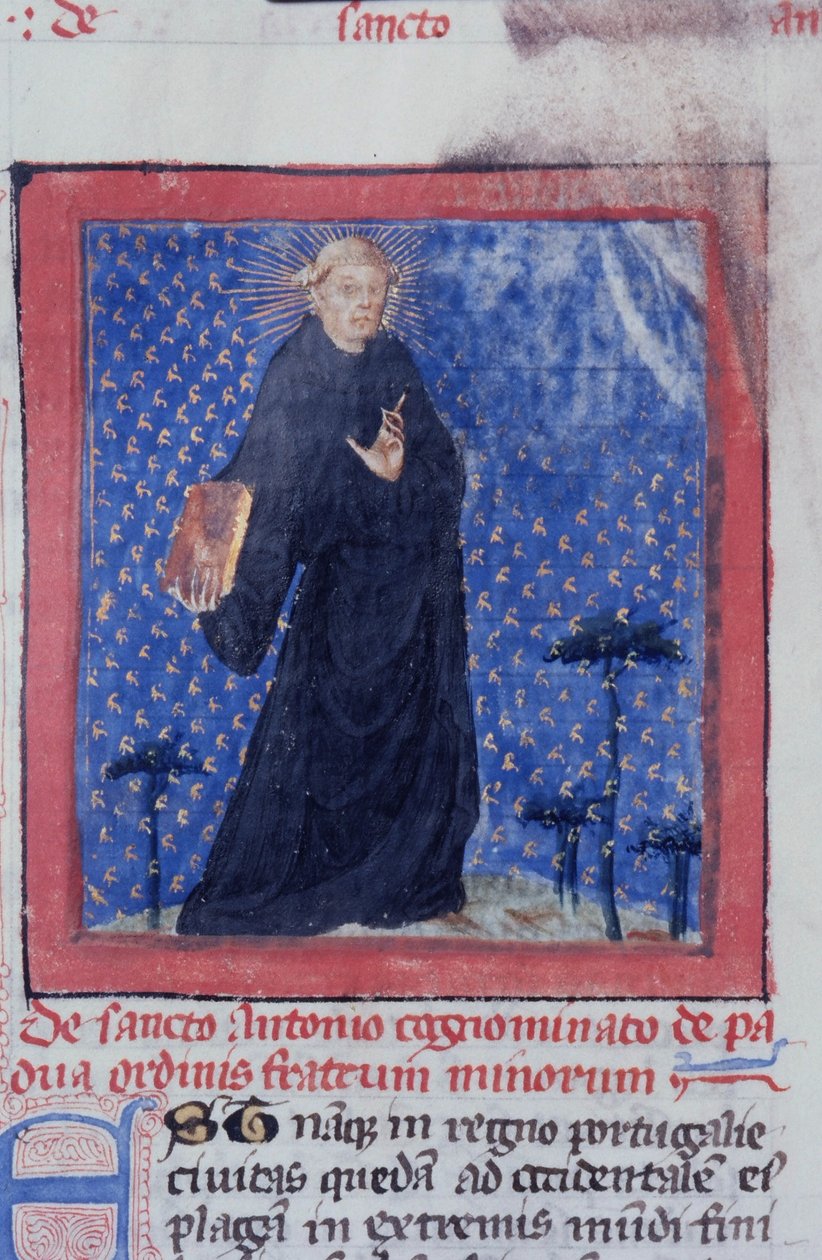 : de sancto an
De sancto Antonio cognominato de pa
dua ordinis fratrum minorum
EST nāq; in regno portugalie
ciuitas quedā ad occidentalē ei'
plagā in extremis mūdi fini